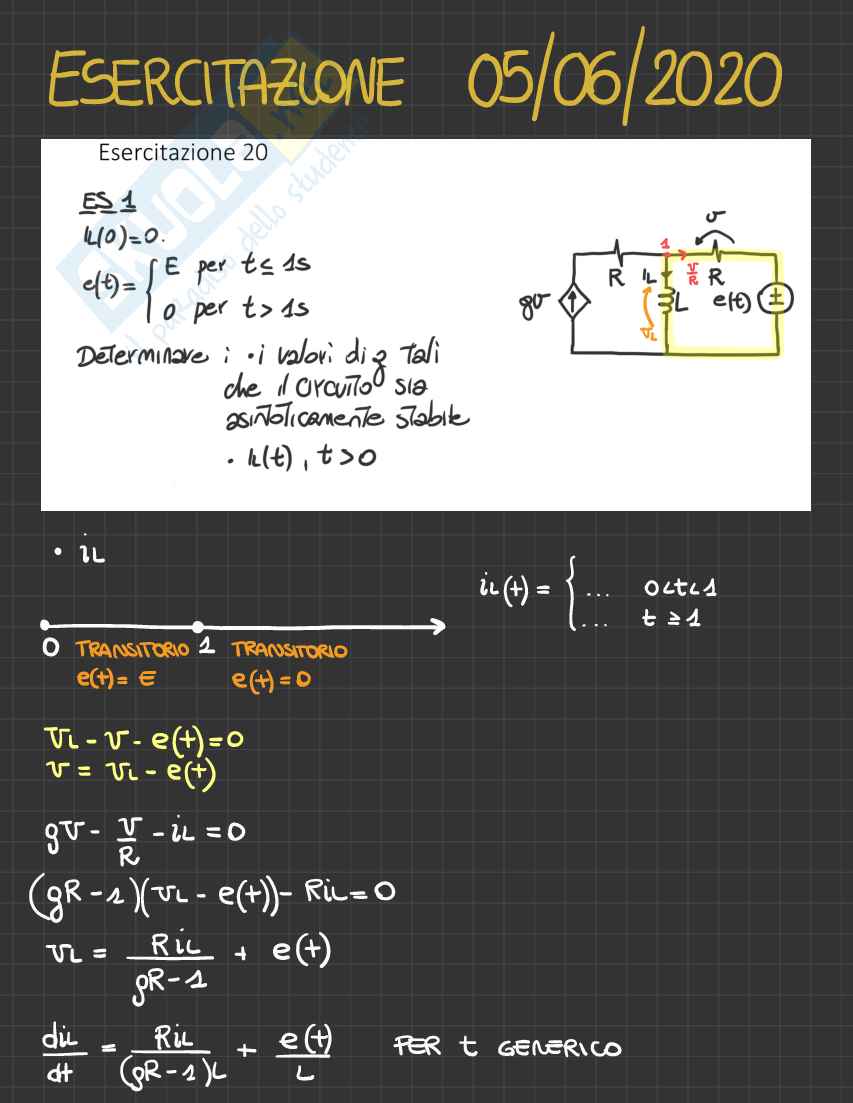 ESERCITAZIONE 05/06/2020
Esercitazione 20
ES 1
iL(0)=0.
e(t)= { E per t≤ 1s
0 per t> 1s
Determinare : • i valori di g tali
che il circuito sia
asintoticamente stabile
• iL(t), t>0
v
1
R iL v/R R
gv L e(t) ±
vL
• iL
iL(t) = { ... 0<t<1
... t ≥ 1
0 TRANSITORIO 1 TRANSITORIO
e(t)= E e(t)=0
vL - v - e(t)=0
v = vL - e(t)
gv - v/R - iL = 0
(gR-1)(vL - e(t)) - RiL = 0
vL = RiL/(gR-1) + e(t)
diL/dt = RiL/((gR-1)L) + e(t)/L PER t GENERICO
SKUOLA.net
il paradiso dello studente